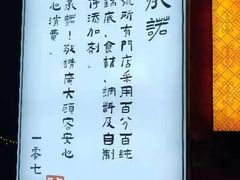 承諾
號所有門店采用百分百純
鍋底、食材、調料及自制
得添加劑
承諾！敬請廣大顧客安心
也消費
一零七